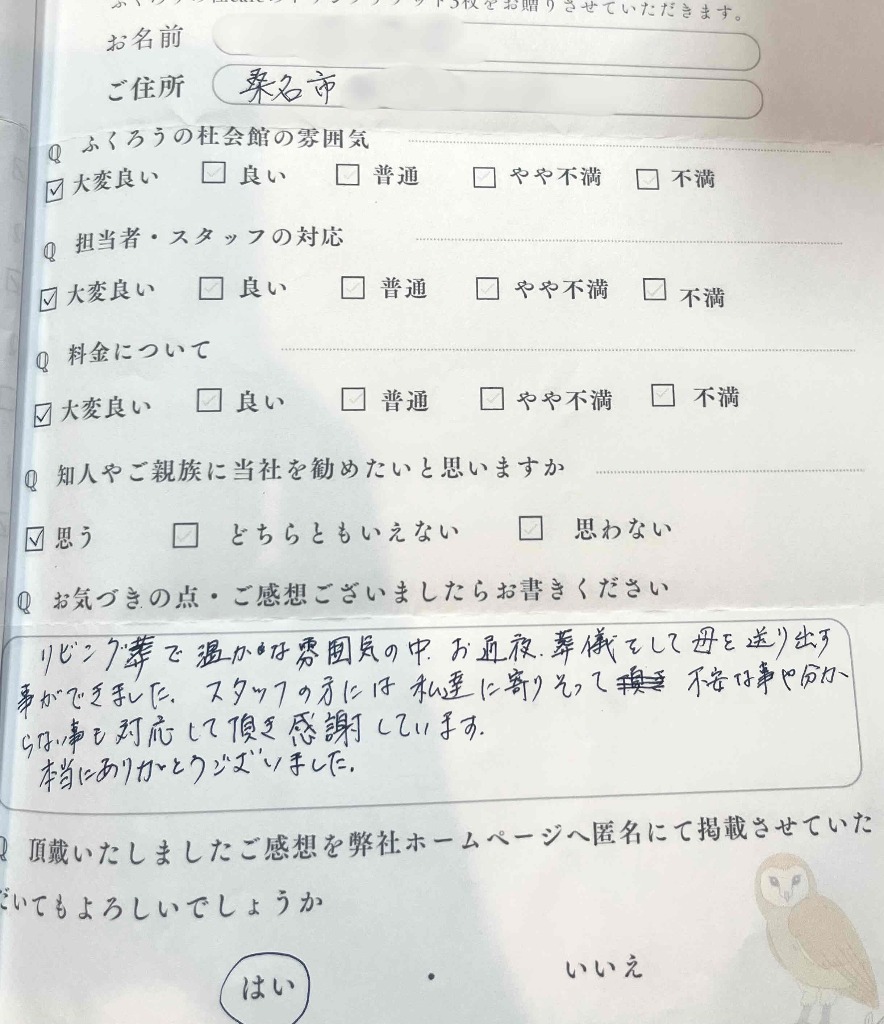 ドリンクチケット3枚をお贈りさせていただきます。
お名前
ご住所 桑名市
Q ふくろうの杜会館の雰囲気
☑ 大変良い □ 良い □ 普通 □ やや不満 □ 不満
Q 担当者・スタッフの対応
☑ 大変良い □ 良い □ 普通 □ やや不満 □ 不満
Q 料金について
☑ 大変良い □ 良い □ 普通 □ やや不満 □ 不満
Q 知人やご親族に当社を勧めたいと思いますか
☑ 思う □ どちらともいえない □ 思わない
Q お気づきの点・ご感想ございましたらお書きください
リビング葬で温かな雰囲気の中、お通夜、葬儀をして母を送り出す
事ができました。スタッフの方には私達に寄りそって 不安な事や分か
らない事も対応して頂き感謝しています。
本当にありがとうございました。
Q 頂戴いたしましたご感想を弊社ホームページへ匿名にて掲載させていた
だいてもよろしいでしょうか
はい ・ いいえ